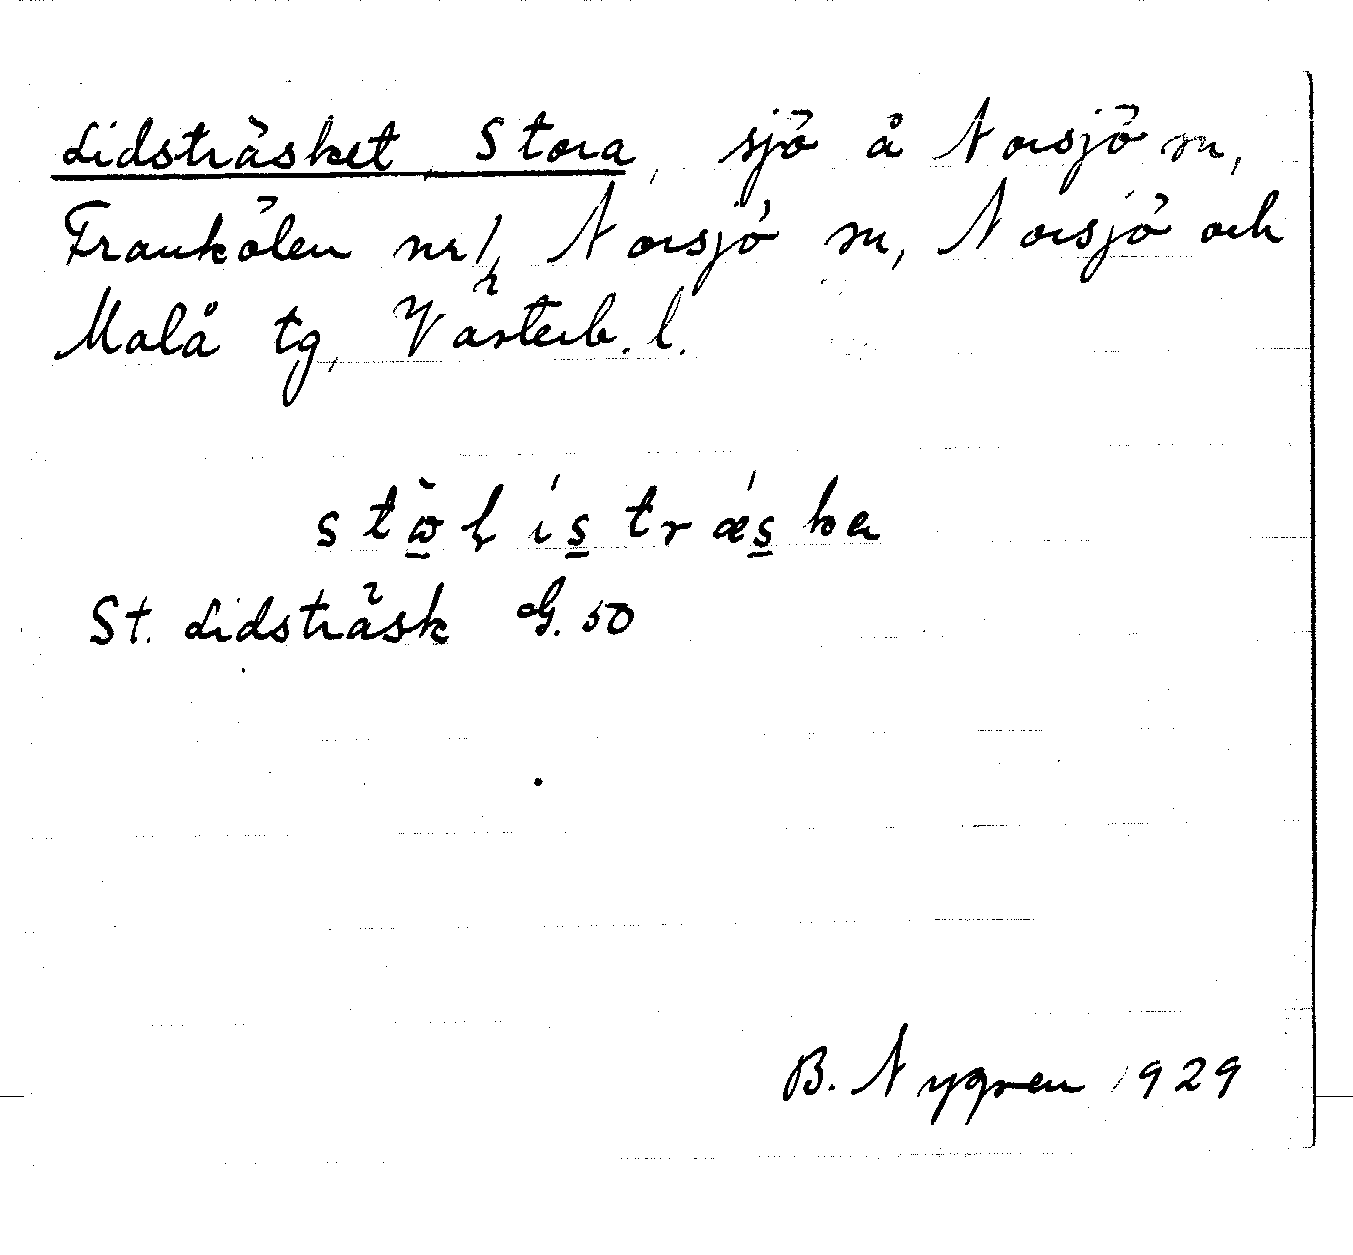 Lidsträsket, Stora, sjö å Norsjö sn,
Frankölen nr 1, Norsjö sn, Norsjö och
Malå tg, Västerb. l.
stὼ̠ɽ ís̠ trǽs̠ka
St. Lidsträsk G. 50
B. Nygren 1929